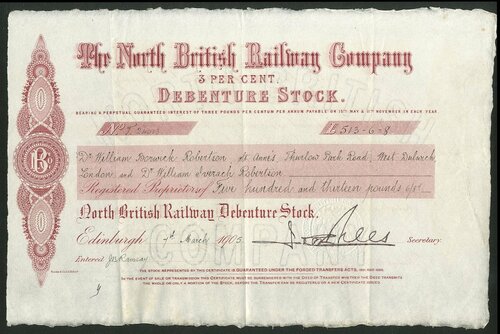 The North British Railway Company
3 PER CENT.
DEBENTURE STOCK.
BEARING A PERPETUAL GUARANTEED INTEREST OF THREE POUNDS PER CENTUM PER ANNUM PAYABLE ON 15TH MAY & 11TH NOVEMBER IN EACH YEAR
No T £513-6-8
Dr William Borwick Robertson, St Anne's, Thurlow Park Road, West Dulwich,
London and Dr William Iverach Robertson
Registered Proprietors of Five hundred and thirteen pounds 6/8
North British Railway Debenture Stock.
Edinburgh 9th March 1905 Secretary.
Entered J B Ramsay
THE STOCK REPRESENTED BY THIS CERTIFICATE IS GUARANTEED UNDER THE FORGED TRANSFERS ACTS, 1891 AND 1892.
IN THE EVENT OF SALE OR TRANSMISSION THIS CERTIFICATE MUST BE SURRENDERED WITH THE DEED OF TRANSFER WHETHER THE DEED TRANSMITS
THE WHOLE OR ONLY A PORTION OF THE STOCK, BEFORE THE TRANSFER CAN BE REGISTERED OR A NEW CERTIFICATE ISSUED.